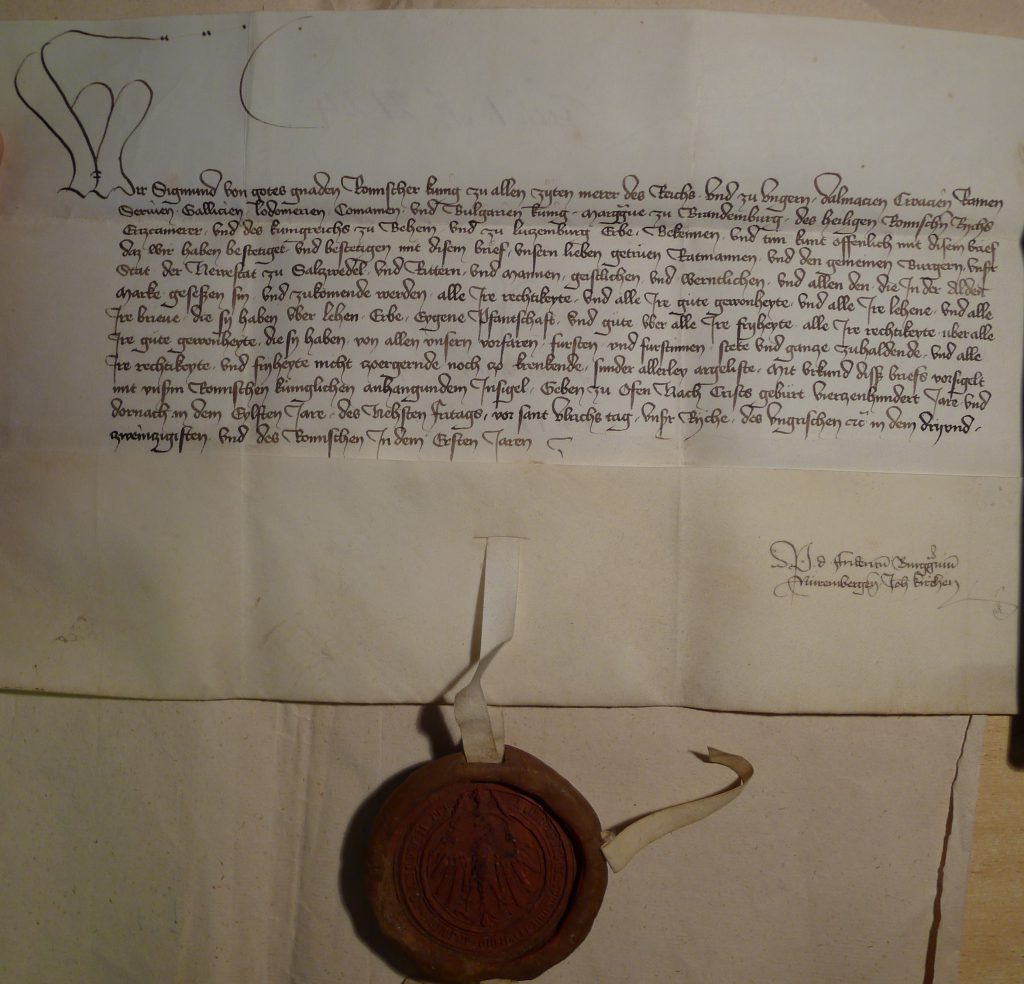 Wir Sigmund von gotes gnaden Romischer kunig zu allen zyten merer des Reichs und zu Ungern Dalmacien Croacien Ramen
Seruien Gallicien lodomerien Comanien und Bulgarien kunig Marggraue zu Brandemburg des heiligen Romischn Rychs
Erzcamerer und des kunigreichs zu Behem und zu luczemburg Erbe Bekennen und tun kunt offenlich mit disem brief
daz wir haben bestetiget und bestetigen mit disem brief unsern lieben getruen Ratmannen und den gemeinen Burgern unsr
Stat der Newestat zu Salzwedel und Rittern und Mannen geistlichen und werntlichen und allen den die In der Alden
Marke gesessen sin und zukomende werden alle Ire rechtikeyte und alle Ire gute gewonheyte und alle Ire lehene und alle
Ire brieue die sy haben uber lehen Erbe Eygene Pfantschaft und gute uber alle Ire fryheyte alle Ire rechtikeyte uber alle
Ire gute gewonheyte die sy haben von allen unsern vorfaren fursten und furstinnen stete und gancze zuhaldende und alle
Ire rechtikeyte und fryheyte nicht zoergernde noch zo krenkende sunder allerley argeliste Mit urkund diss briefs vorsigelt
mit unsrm Romischen kuniglichen anhangundem Insigel Geben zu Ofen Nach Crists geburt vierzenhundert Jare und
dornach in dem Eylften Jare des Nehsten fritags vor sant Ulrichs tag unsr Ryche des Ungrischen etc in dem dryund
zweinzigisten und des Romischen In dem Ersten Jaren
d Fridericum Burggrauium
Nurembergen Joh kirchen